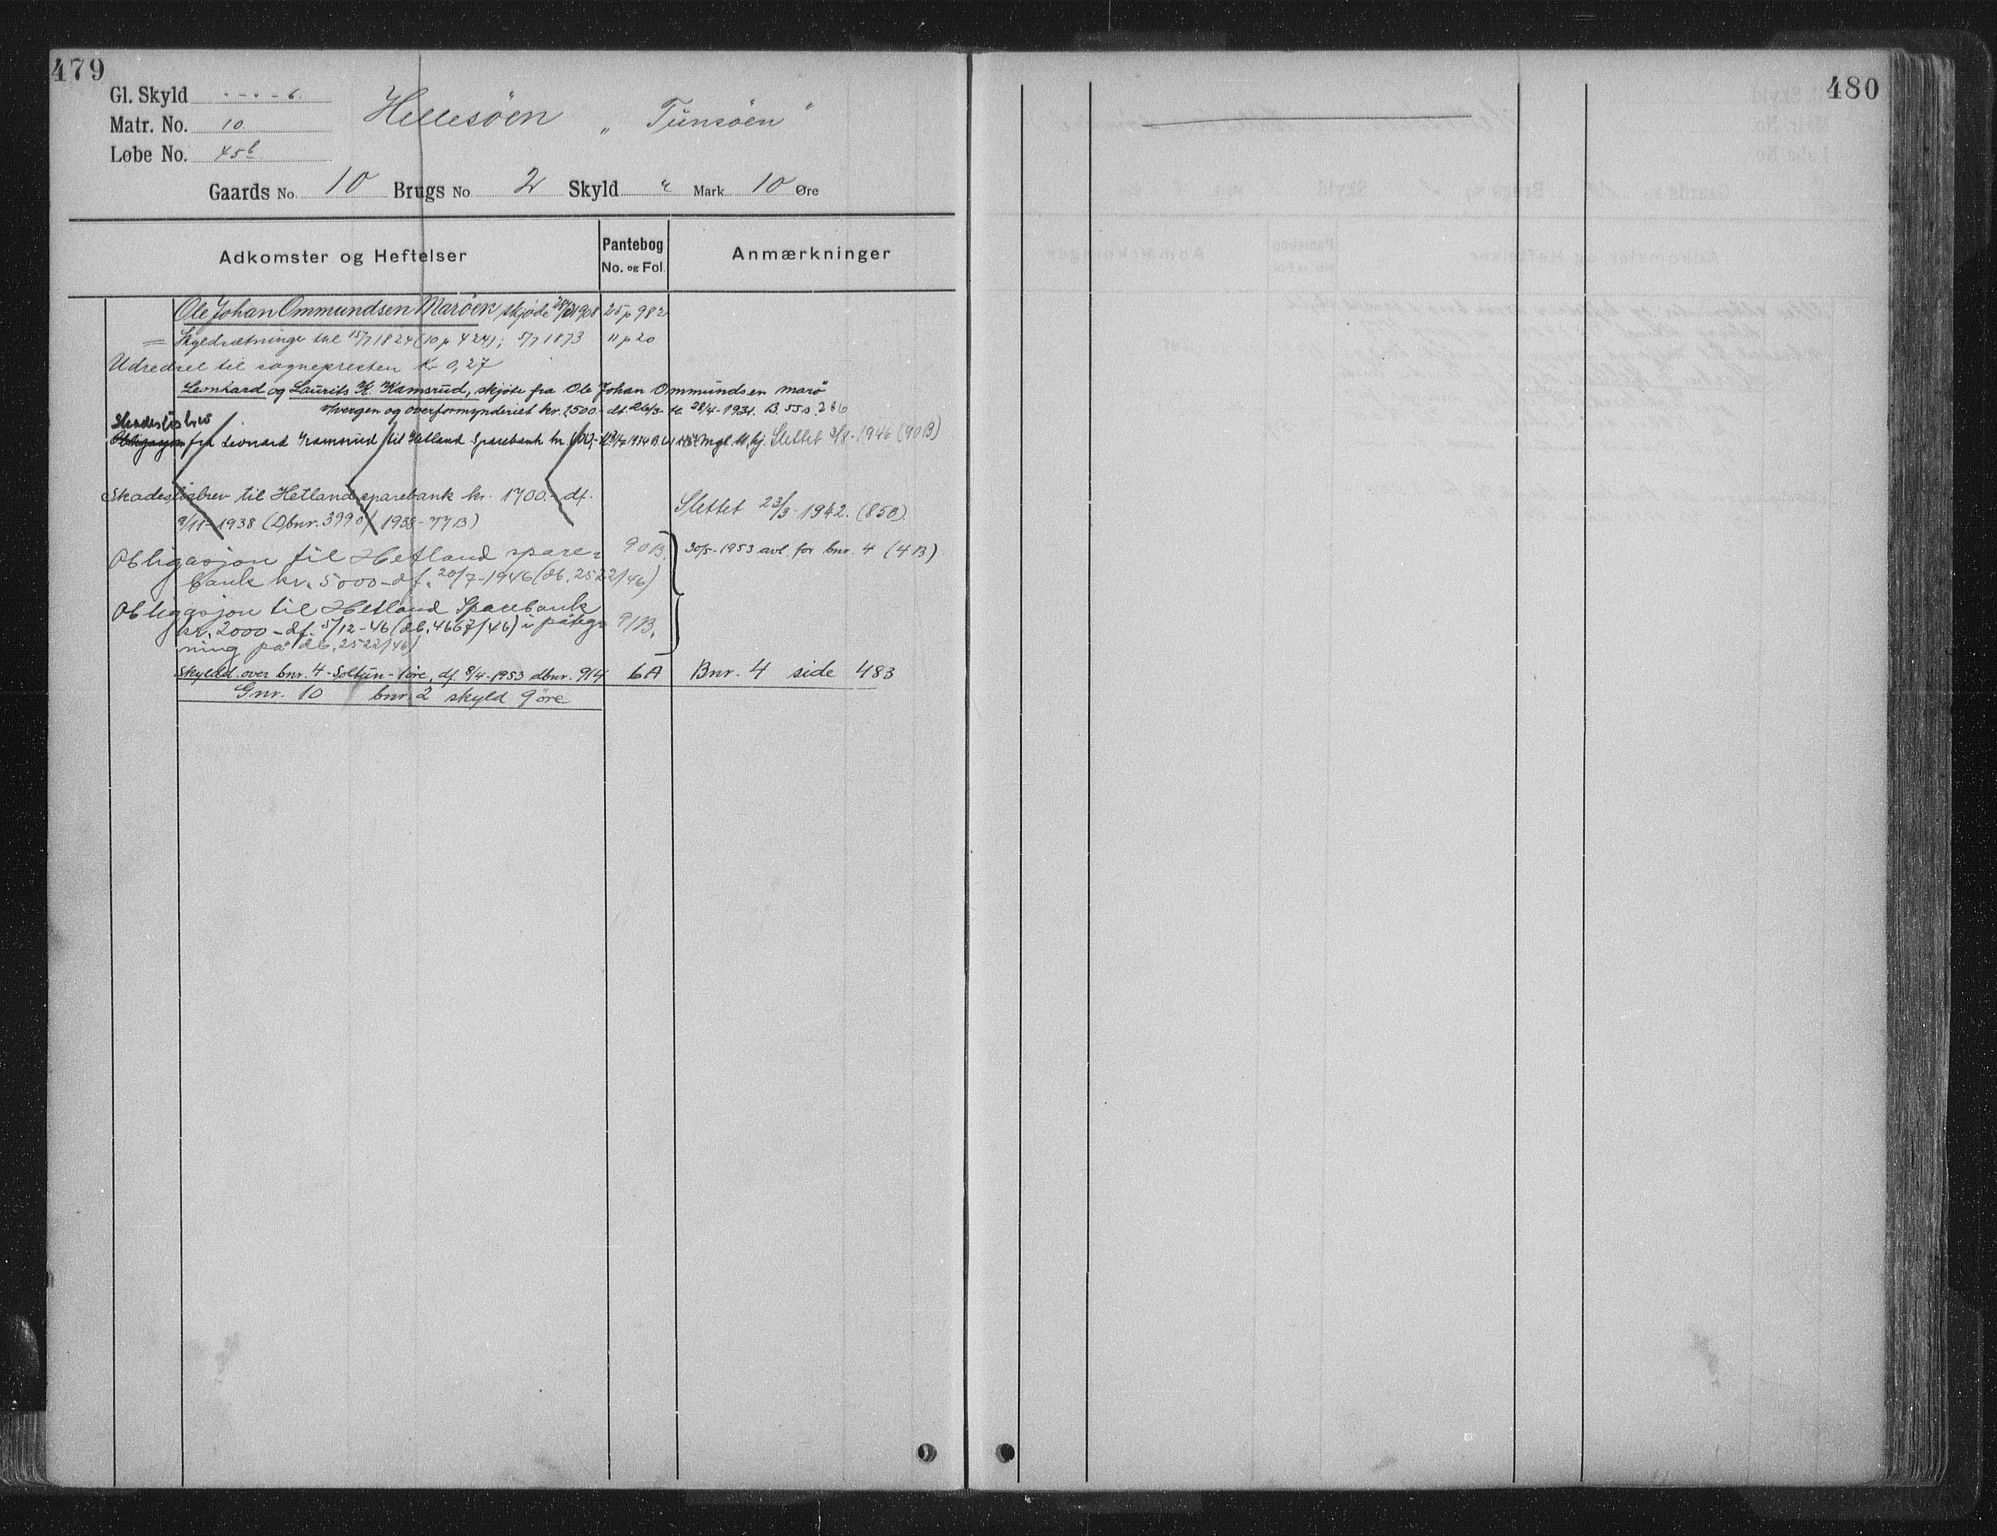 479
Gl. Skyld - - - 6.
Matr. No. 10.
Løbe No. 45b
Hellesöen " Tunsöen "
Gaards No. 10 Brugs No 2 Skyld " Mark 10 Øre
Adkomster og Heftelser
Pantebog
No. og Fol.
Anmærkninger
Ole Johan Ommundsen Maröen skjöde 1908 25 p 982
= Skyldsætninge thl 15/7 1824 (10 p 424); 5/7 1873 11 p 20
Udredsel til sognepresten Kr 0,27
Leonhard og Laurits K. Kamsrud, skjöte fra Ole Johan Ommundsen Marö
vergen og overformynderiet kr. 1500.- dt. 26/3- tl. 28/4-1931. B. 55 s. 286
Skadeslösbrev
Obligasjon fra Leonard til Hetland Sparebank kr. Slettet 3/8-1946 (90B)
Skadeslösbrev til Hetland sparebank kr. 1700.- df.
9/11-1938 (Dbnr. 3990/1938-77B)
Slettet 23/3-1942. (85B)
Obligasjon til Hetland spare= 90B.
bank kr. 5000-df. 20/7-1946 (db. 2522/46)
30/5-1953 avl. for bnr. 4 (4B)
Obligasjon til Hetland Sparebank
kr. 2000-df. 5/12-46 (db. 4667/46) i påteg= 91B.
ning på db. 2522/46)
Skyldd. over bnr. 4 - Soltun - 1 øre, df. 8/4-1953 dbnr. 914 6A Bnr. 4 side 483
Gnr. 10 bnr. 2 skyld 9 öre
480